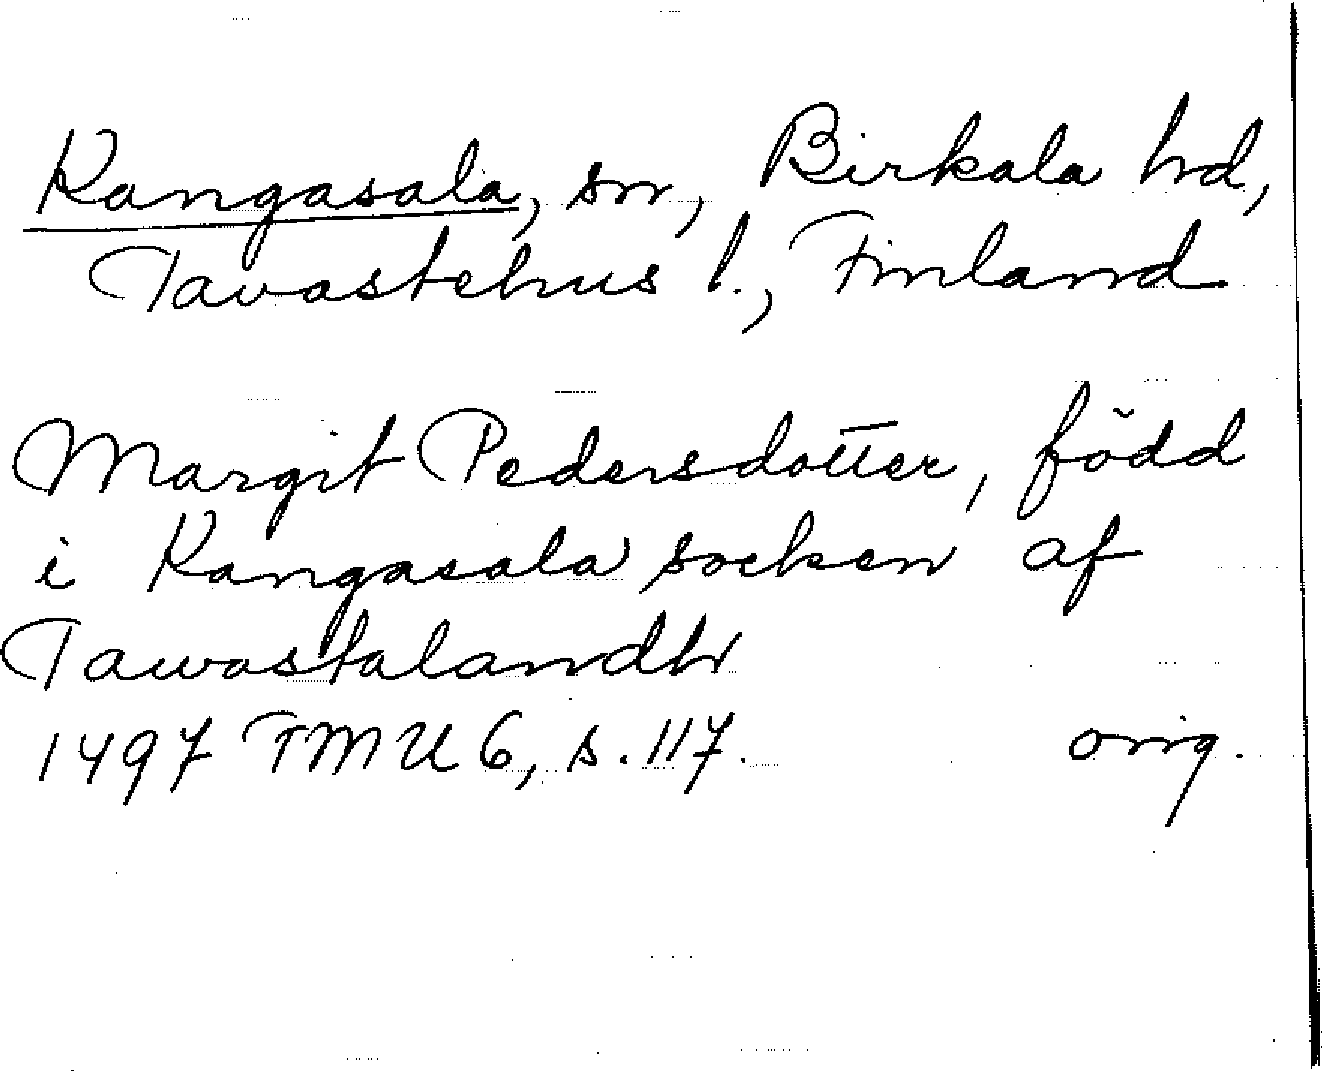 Kangasala, sn, Birkala hd,
Tavastehus l., Finland
Margit Pedersdotter, född
i Kangasala socken af
Tawastalandh
1497 FMU 6, s. 117. orig.